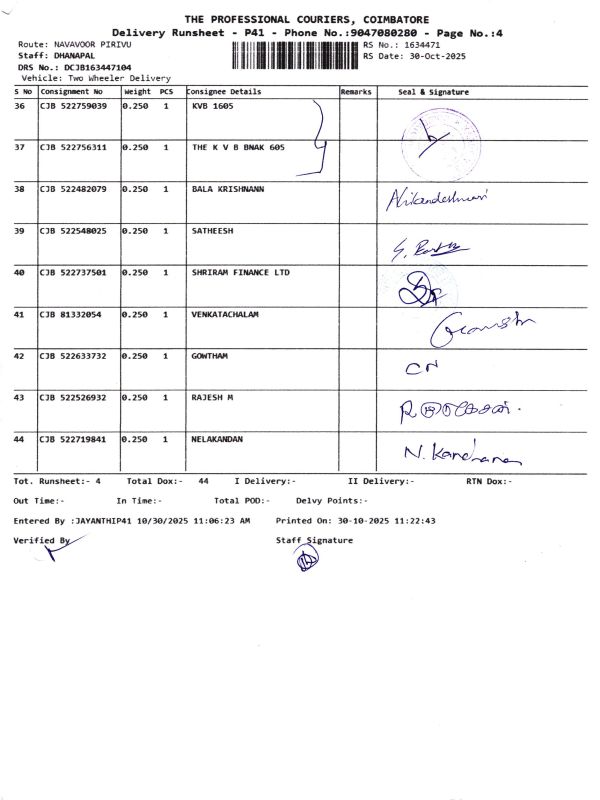 THE PROFESSIONAL COURIERS, COIMBATORE
Delivery Runsheet - P41 - Phone No.:9047080280 - Page No.:4
Route: NAVAVOOR PIRIVU RS No.: 1634471
Staff: DHANAPAL RS Date: 30-Oct-2025
DRS No.: DCJB163447104
Vehicle: Two Wheeler Delivery
S No Consignment No Weight PCS Consignee Details Remarks Seal & Signature
36 CJB 522759039 0.250 1 KVB 1605
37 CJB 522756311 0.250 1 THE K V B BNAK 605
38 CJB 522482079 0.250 1 BALA KRISHNANN
39 CJB 522548025 0.250 1 SATHEESH
40 CJB 522737501 0.250 1 SHRIRAM FINANCE LTD
41 CJB 81332054 0.250 1 VENKATACHALAM
42 CJB 522633732 0.250 1 GOWTHAM CN
43 CJB 522526932 0.250 1 RAJESH M
44 CJB 522719841 0.250 1 NELAKANDAN N. Kandhanan
Tot. Runsheet:- 4 Total Dox:- 44 I Delivery:- II Delivery:- RTN Dox:-
Out Time:- In Time:- Total POD:- Delvy Points:-
Entered By :JAYANTHIP41 10/30/2025 11:06:23 AM Printed On: 30-10-2025 11:22:43
Verified By Staff Signature